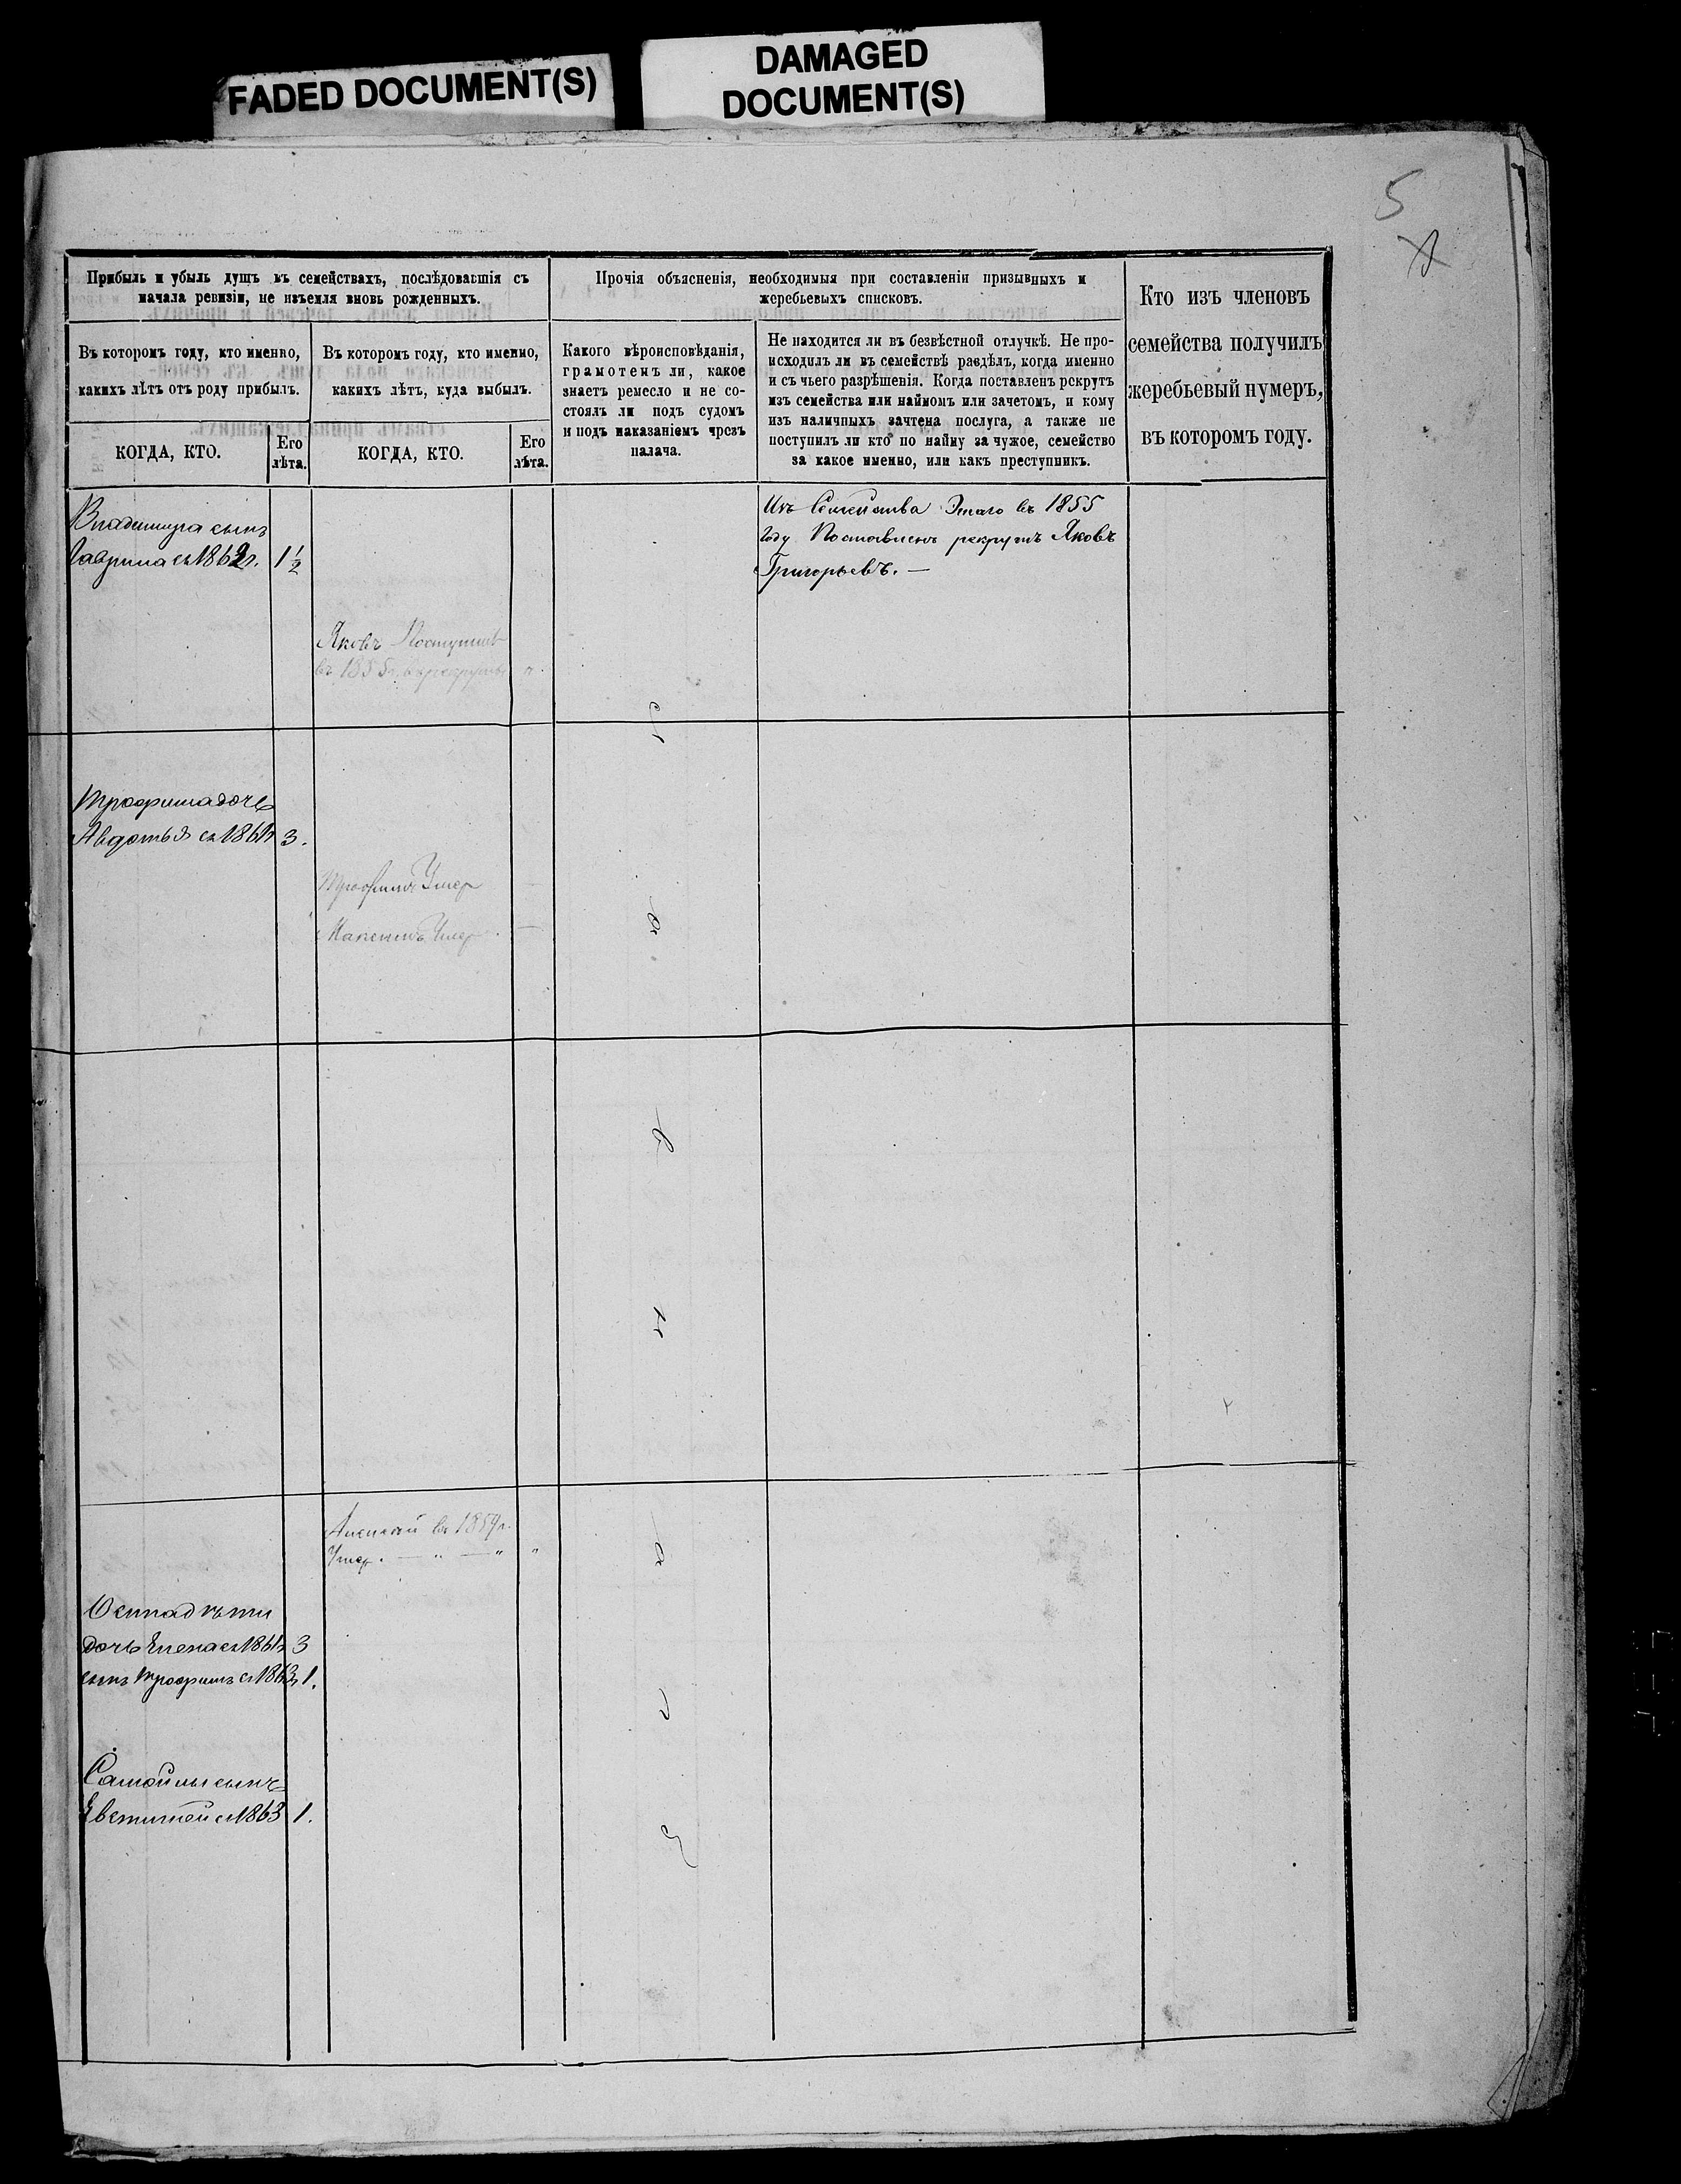 FADED DOCUMENT(S)
DAMAGED
DOCUMENT(S)
5
Прибыль и убыль душъ въ семействахъ, послѣдовавшія съ
начала ревизіи, не изъемля вновь рожденныхъ.
Въ которомъ году, кто именно,
какихъ лѣтъ отъ роду прибылъ.
КОГДА, КТО.
Его
лѣта.
Въ которомъ году, кто именно,
какихъ лѣтъ, куда выбылъ.
КОГДА, КТО.
Его
лѣта.
Прочія объясненія, необходимыя при составленіи призывныхъ и
жеребьевыхъ списковъ.
Какого вѣроисповѣданія,
грамотенъ ли, какое
знаетъ ремесло и не со-
стоялъ ли подъ судомъ
и подъ наказаніемъ чрезъ
палача.
Не находится ли въ безвѣстной отлучкѣ. Не про-
исходилъ ли въ семействѣ раздѣлъ, когда именно
и съ чьего разрѣшенія. Когда поставленъ рекрутъ
изъ семейства или наймомъ или зачетомъ, и кому
изъ наличныхъ зачтена послуга, а также не
поступилъ ли кто по найму за чужое, семейство
за какое именно, или какъ преступникъ.
Кто изъ членовъ
семейства получилъ
жеребьевый нумеръ,
въ которомъ году.
Владимира сынъ
Гаврила съ 1862 г. 1 1/2
Изъ Семейства Этаго въ 1855
году Поставленъ рекрутъ Яковъ
Григорьевъ. —
Яковъ Поступилъ
въ 1855 г. въ рекруты
Трофима дочь
Авдотья съ 1861 г. 3.
Трофимъ Умер —
Умер —
Алексей въ 1859 г.
Умер. — " — " "
Осипа дѣти
дочь Елена съ 1861 г. 3
сынъ Трофимъ съ 1863 г. 1.
Самойлы сынъ
съ 1863 1.